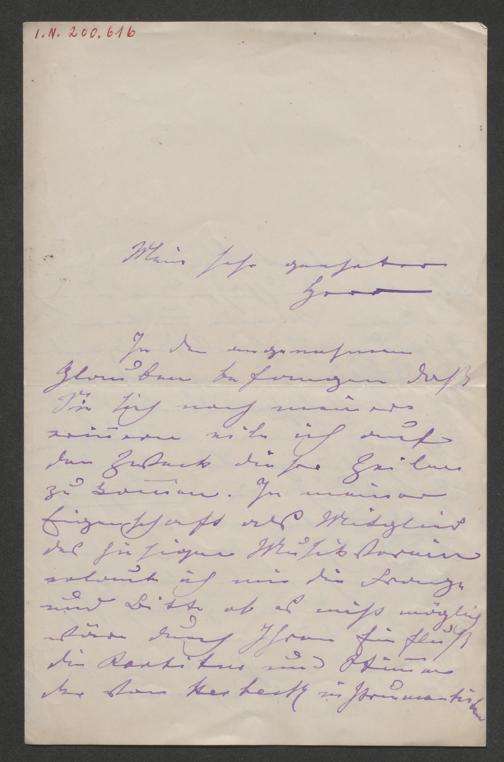 I.N. 200.616
Mein sehr geehrter
Herr
In den angenehmen
Glauben befangen daß
Sie sich noch meiner
erinnern eile ich auf
den Zweck dieser Zeilen
zu kommen. In meiner
Eigenschaft als Mitglied
des hiesigen Musikverein
erlaubt ich mir die Frage
und Bitte ob es nicht möglich
wäre durch Ihren Einfluß
die Partitur und Stimmen
der von Herbeck instrumentirten